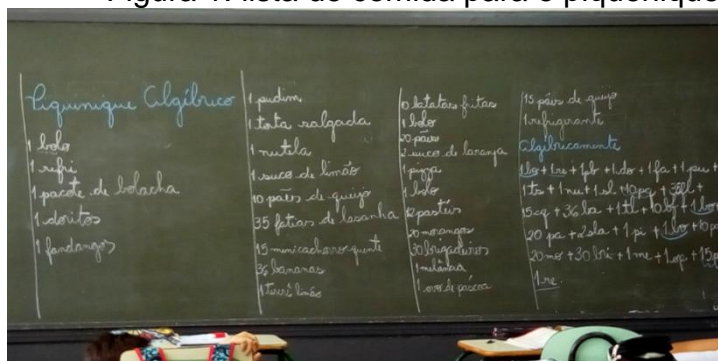 Piquinique Algíbrico
1 bolo
1 refri
1 pacote de bolacha
1 doritos
1 fandangos
1 pudim
1 torta salgada
1 nutela
1 suco de limão
10 pães de queijo
35 fatias de lasanha
15 minicachorro quente
36 bananas
1 tererê limão
10 batatas fritas
1 bolo
20 pães
2 suco de laranja
1 pizza
1 bolo
12 pastéis
20 morangos
30 brigadeiros
1 melância
1 ovo de páscoa
15 pães de queijo
1 refrigerante
Algibricamente
1bo + 1re + 1pb + 1do + 1fa + 1pu +
1ts + 1nu + 1sl + 10pq + 35fl +
15cq + 36ba + 1tl + 10bf + 1bo
20pa + 2sla + 1pi + 1bo +
20mo + 30bri + 1me + 1op + 15p
1re